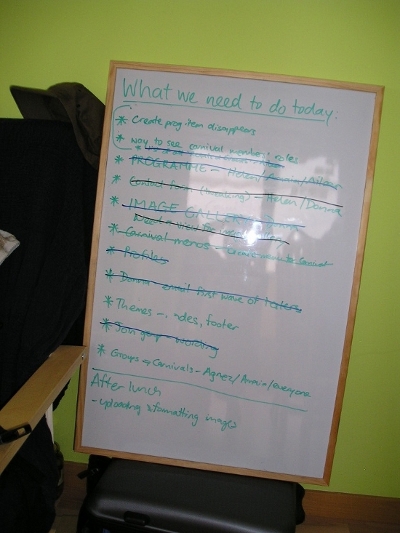 What we need to do today:
* Create prog item disappears
* way to see carnival members' roles
* PROGRAMME - Helen/Armin/
* Contact form () - Helen/Donna
* IMAGE GALLERY -
Weekly view for
* Carnival menos -
* Profiles
* Donna - email first wave of testers
* Themes - nodes, footer
* Join group wording
* Groups + Carnivals - Agnez/Armin/everyone
After lunch
- uploading & formatting images